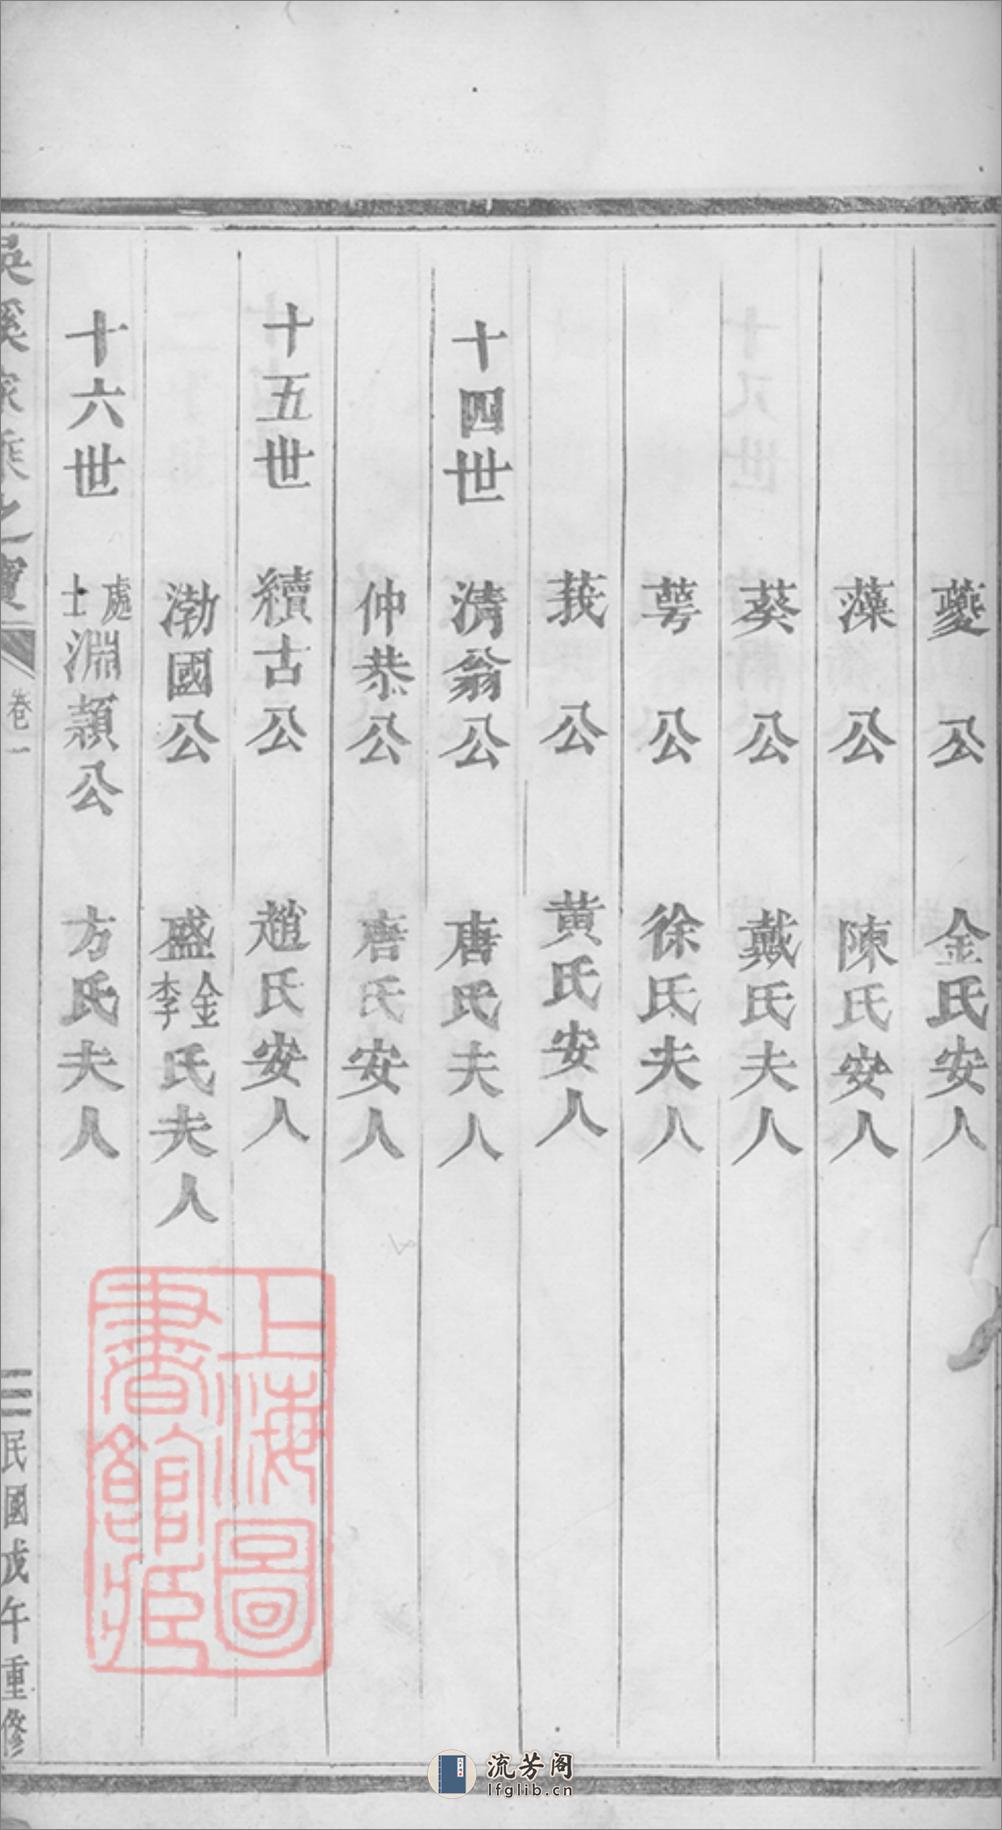 夔公 金氏安人
藻公 陳氏安人
葵公 戴氏夫人
萼公 徐氏夫人
莪公 黄氏安人
十四世 清翁公 唐氏夫人
仲恭公 唐氏安人
十五世 續古公 趙氏安人
渤國公 盛金李氏夫人
十六世 處士淵穎公 方氏夫人
吳溪家乘之寶 卷一 三 民國戊午重修
上海圖書館藏
流芳阁
lfglib.cn